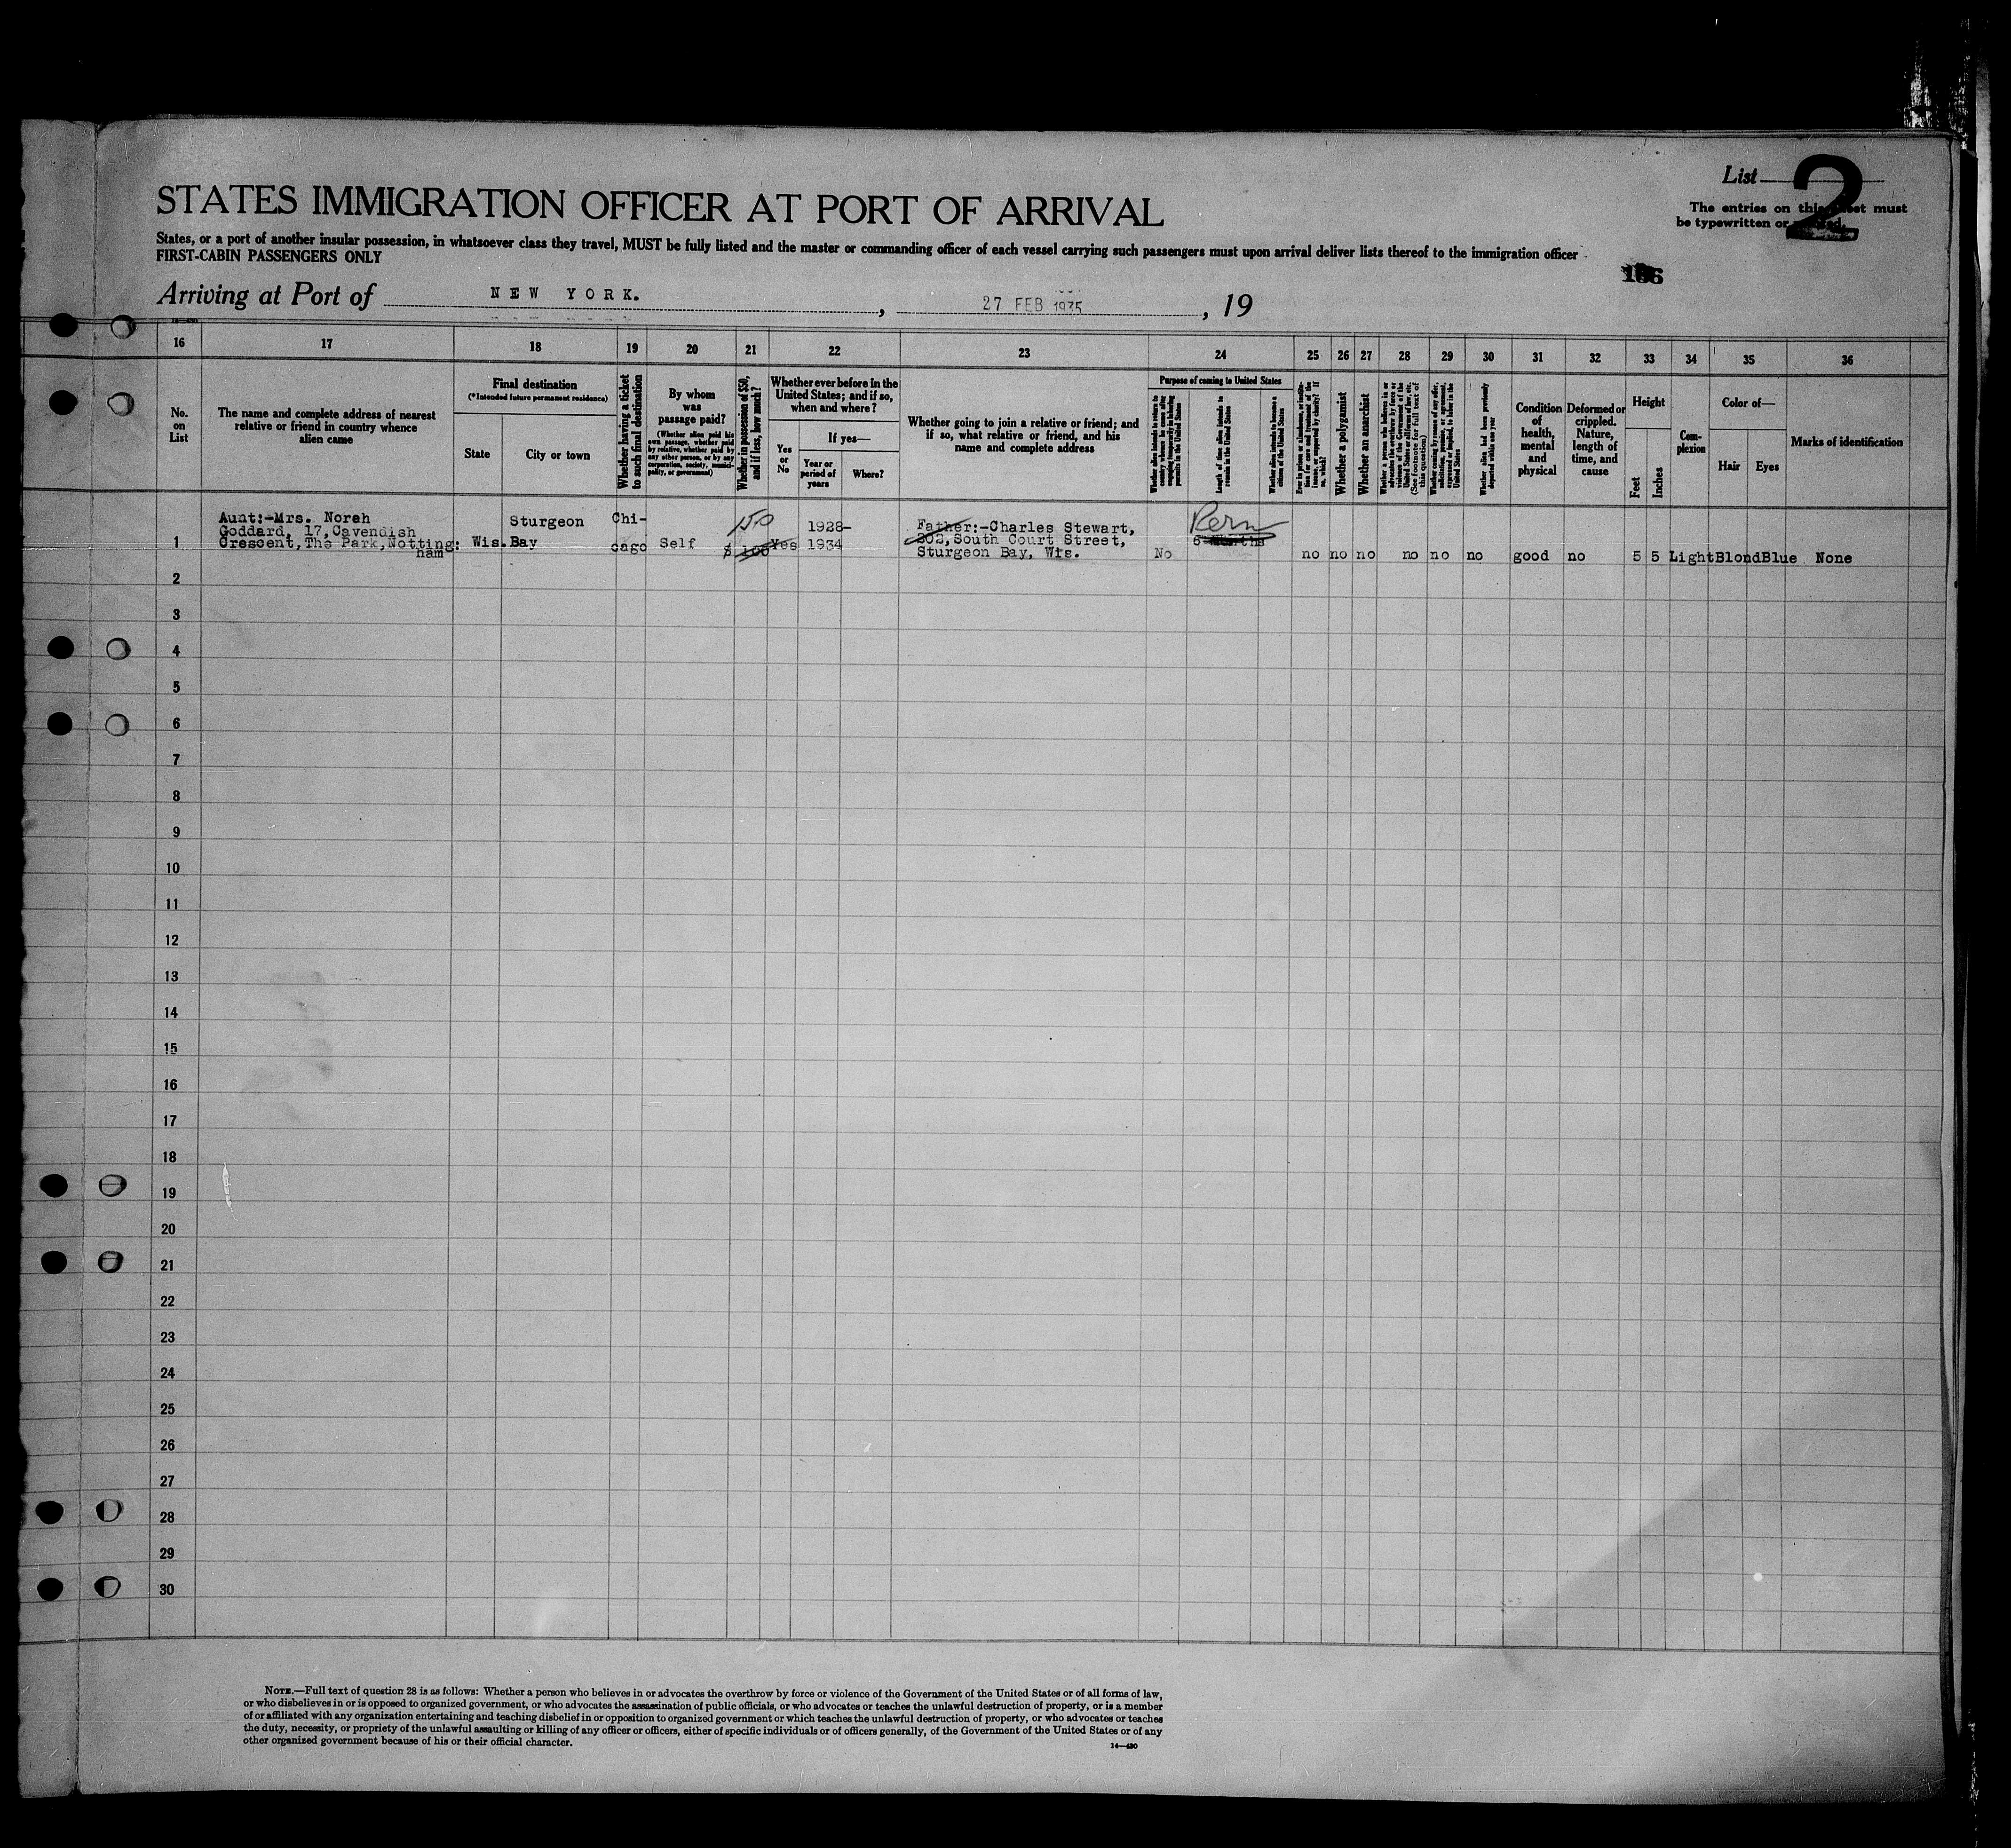 List 2
The entries on this must
be typewritten or
STATES IMMIGRATION OFFICER AT PORT OF ARRIVAL
States, or a port of another insular possession, in whatsoever class they travel, MUST be fully listed and the master or commanding officer of each vessel carrying such passengers must upon arrival deliver lists thereof to the immigration officer
FIRST-CABIN PASSENGERS ONLY
Arriving at Port of NEW YORK. , 27 FEB 1935 , 19
16 17 18 19 20 21 22 23 24 25 26 27 28 29 30 31 32 33 34 35 36
No.
on
List
The name and complete address of nearest
relative or friend in country whence
alien came
Final destination
(*Intended future permanent residence)
State
City or town
Whether having a ticket
to such final destination
By whom
was
passage paid?
(Whether alien paid his
own passage, whether paid
by relative, whether paid by
any other person, or by any
corporation, society, munici-
pality, or government)
Whether in possession of $50,
and if less, how much?
Whether ever before in the
United States; and if so,
when and where?
Yes
or
No
If yes—
Year or
period of
years
Where?
Whether going to join a relative or friend; and
if so, what relative or friend, and his
name and complete address
Purpose of coming to United States
Whether alien intends to return to
country whence he came after
engaging temporarily in laboring
pursuits in the United States
Length of time alien intends to
remain in the United States
Whether alien intends to become a
citizen of the United States
Ever in prison or almshouse, or institu-
tion for care and treatment of the
insane, or supported by charity? If
so, which?
Whether a polygamist
Whether an anarchist
Whether a person who believes in or
advocates the overthrow by force or
violence of the Government of the
United States or all forms of law, etc.
(See footnote for full text of
this question)
Whether coming by reason of any offer,
solicitation, promise, or agreement,
expressed or implied, to labor in the
United States
Whether alien had been previously
deported within one year
Condition
of
health,
mental
and
physical
Deformed or
crippled.
Nature,
length of
time, and
cause
Height
Feet
Inches
Com-
plexion
Color of—
Hair
Eyes
Marks of identification
1
Aunt:-Mrs. Norah
Goddard, 17,Cavendish
Crescent,The Park,Notting:
ham
Wis.
Sturgeon
Bay
Chi-
cago
Self
150
$ 100
Yes
1928-
1934
Father:-Charles Stewart,
302,South Court Street,
Sturgeon Bay, Wis.
No
6 Months
no no no no no no good no 5 5 Light Blond Blue None
2
3
4
5
6
7
8
9
10
11
12
13
14
15
16
17
18
19
20
21
22
23
24
25
26
27
28
29
30
NOTE.—Full text of question 28 is as follows: Whether a person who believes in or advocates the overthrow by force or violence of the Government of the United States or of all forms of law,
or who disbelieves in or is opposed to organized government, or who advocates the assassination of public officials, or who advocates or teaches the unlawful destruction of property, or is a member
of or affiliated with any organization entertaining and teaching disbelief in or opposition to organized government or which teaches the unlawful destruction of property, or who advocates or teaches
the duty, necessity, or propriety of the unlawful assaulting or killing of any officer or officers, either of specific individuals or of officers generally, of the Government of the United States or of any
other organized government because of his or their official character.
14—430